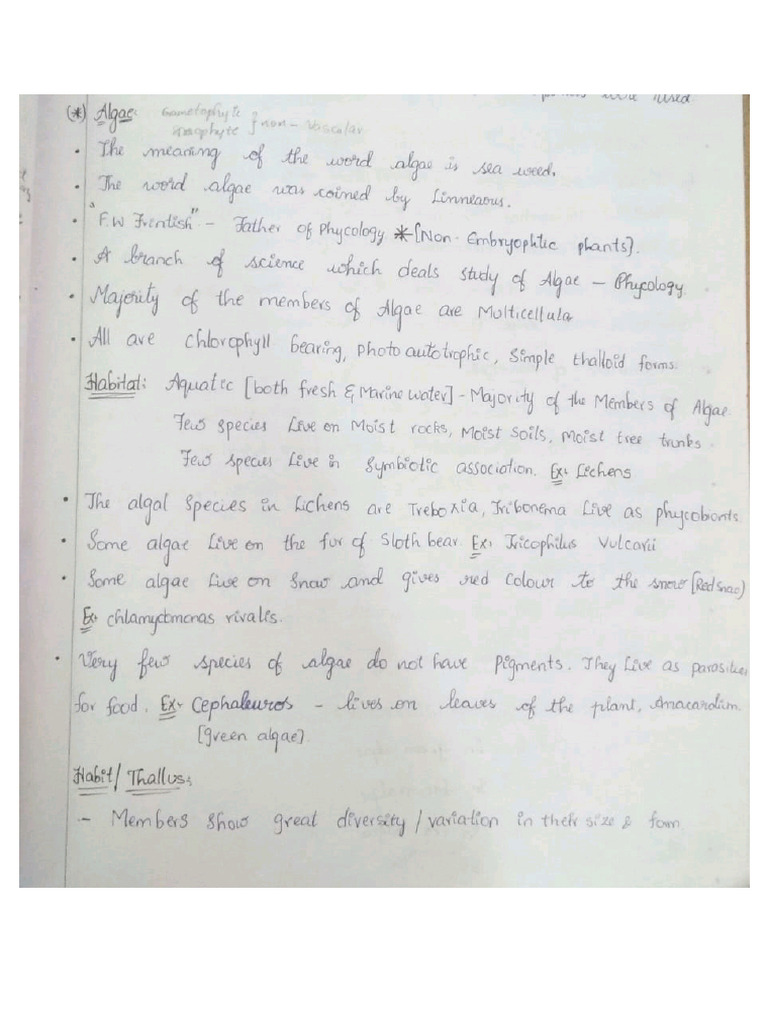 were used.
(*) Algae: Gametophyte
} non-vascular
• The meaning of the word algae is sea weed.
• The word algae was coined by Linneaous.
• "F.W Frentish" - Father of Phycology * [Non-Embryophtic phants}.
• A branch of science which deals study of Algae - Phycology
• Majority of the members of Algae are Multicellula
• All are chlorophyll bearing, photo autotrophic, Simple thalloid forms.
Habitat: Aquatic [both fresh & Marine water] - Majority of the Members of Algae.
Few Species Live on Moist rocks, Moist Soils, Moist tree trunks.
Few Species Live in Symbiotic association. Ex: Lichens
• The algal Species in Lichens are Treboxia, Tribonema Live as phycobionts
• Some algae Live on the fur of Sloth bear Ex: Tricophilus Vulcarii
• Some algae Live on Snow and gives red Colour to the snow [Red Snac)
Ex: chlamydomonas rivalis.
• Very few species of algae do not have Pigments. They Live as parasities
for food. Ex: Cephaleuros - Lives on leaves of the plant, Anacardium.
[green algae]
Habit/Thallus:
- Members show great diversity/variation in their size & form